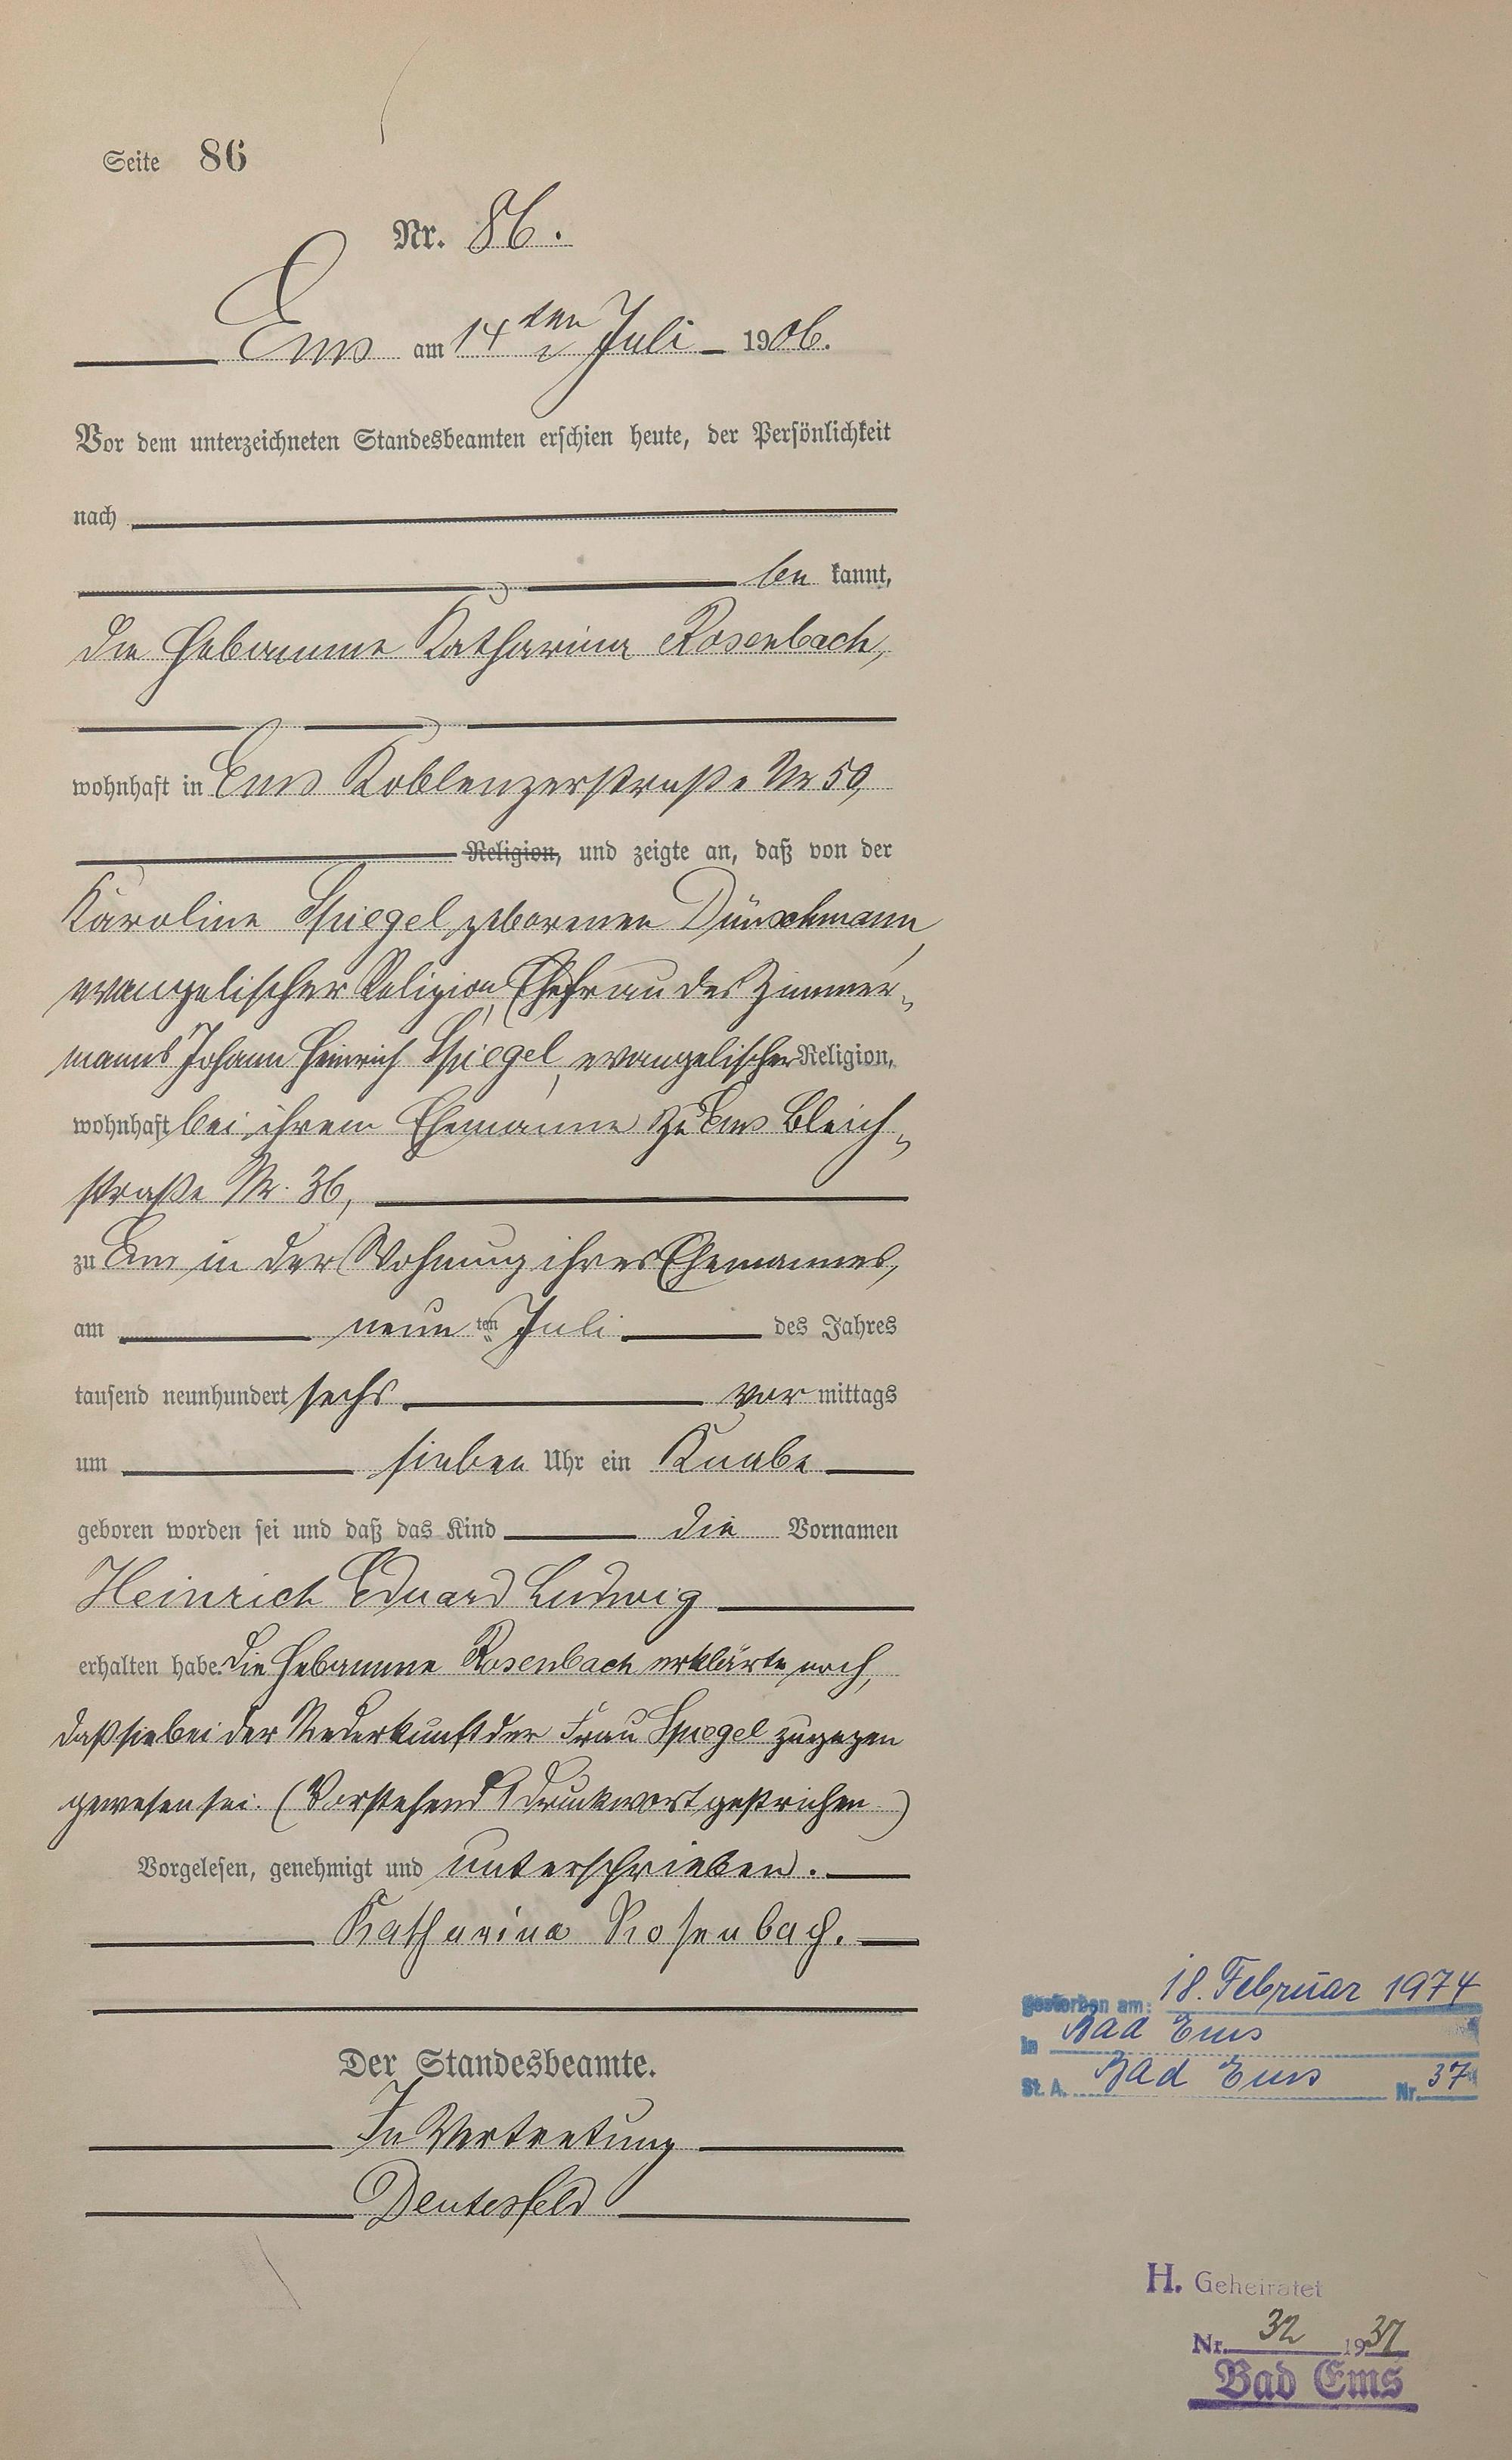 Seite 86
Nr. 86.
Ems am 14ten Juli 1906.
Vor dem unterzeichneten Standesbeamten erschien heute, der Persönlichkeit
nach
be kannt,
die Hebamme Katharina Rosenbach,
wohnhaft in Ems Koblenzerstraße Nr 50,
Religion, und zeigte an, daß von der
Karoline Spiegel, geborenen Dünschmann,
evangelischer Religion, Ehefrau des Zimmer-
manns Johann Heinrich Spiegel, evangelischer Religion,
wohnhaft bei ihrem Ehemanne zu Ems Bleich-
straße Nr. 36,
zu Ems in der Wohnung ihres Ehemannes,
am neun ten Juli des Jahres
tausend neunhundert sechs vor mittags
um sieben Uhr ein Knabe
geboren worden sei und daß das Kind die Vornamen
Heinrich Eduard Ludwig
erhalten habe. Die Hebamme Rosenbach erklärte noch,
daß sie bei der Niederkunft der Frau Spiegel zugegen
gewesen sei. (Vorstehend 1 Druckwort gestrichen.)
Vorgelesen, genehmigt und unterschrieben.
Katharina Rosenbach.
Der Standesbeamte.
In Vertretung
Deutesfeld
gestorben am: 18. Februar 1974
in Bad Ems
St. A. Bad Ems Nr. 37
H. Geheiratet
Nr. 32 1937
Bad Ems